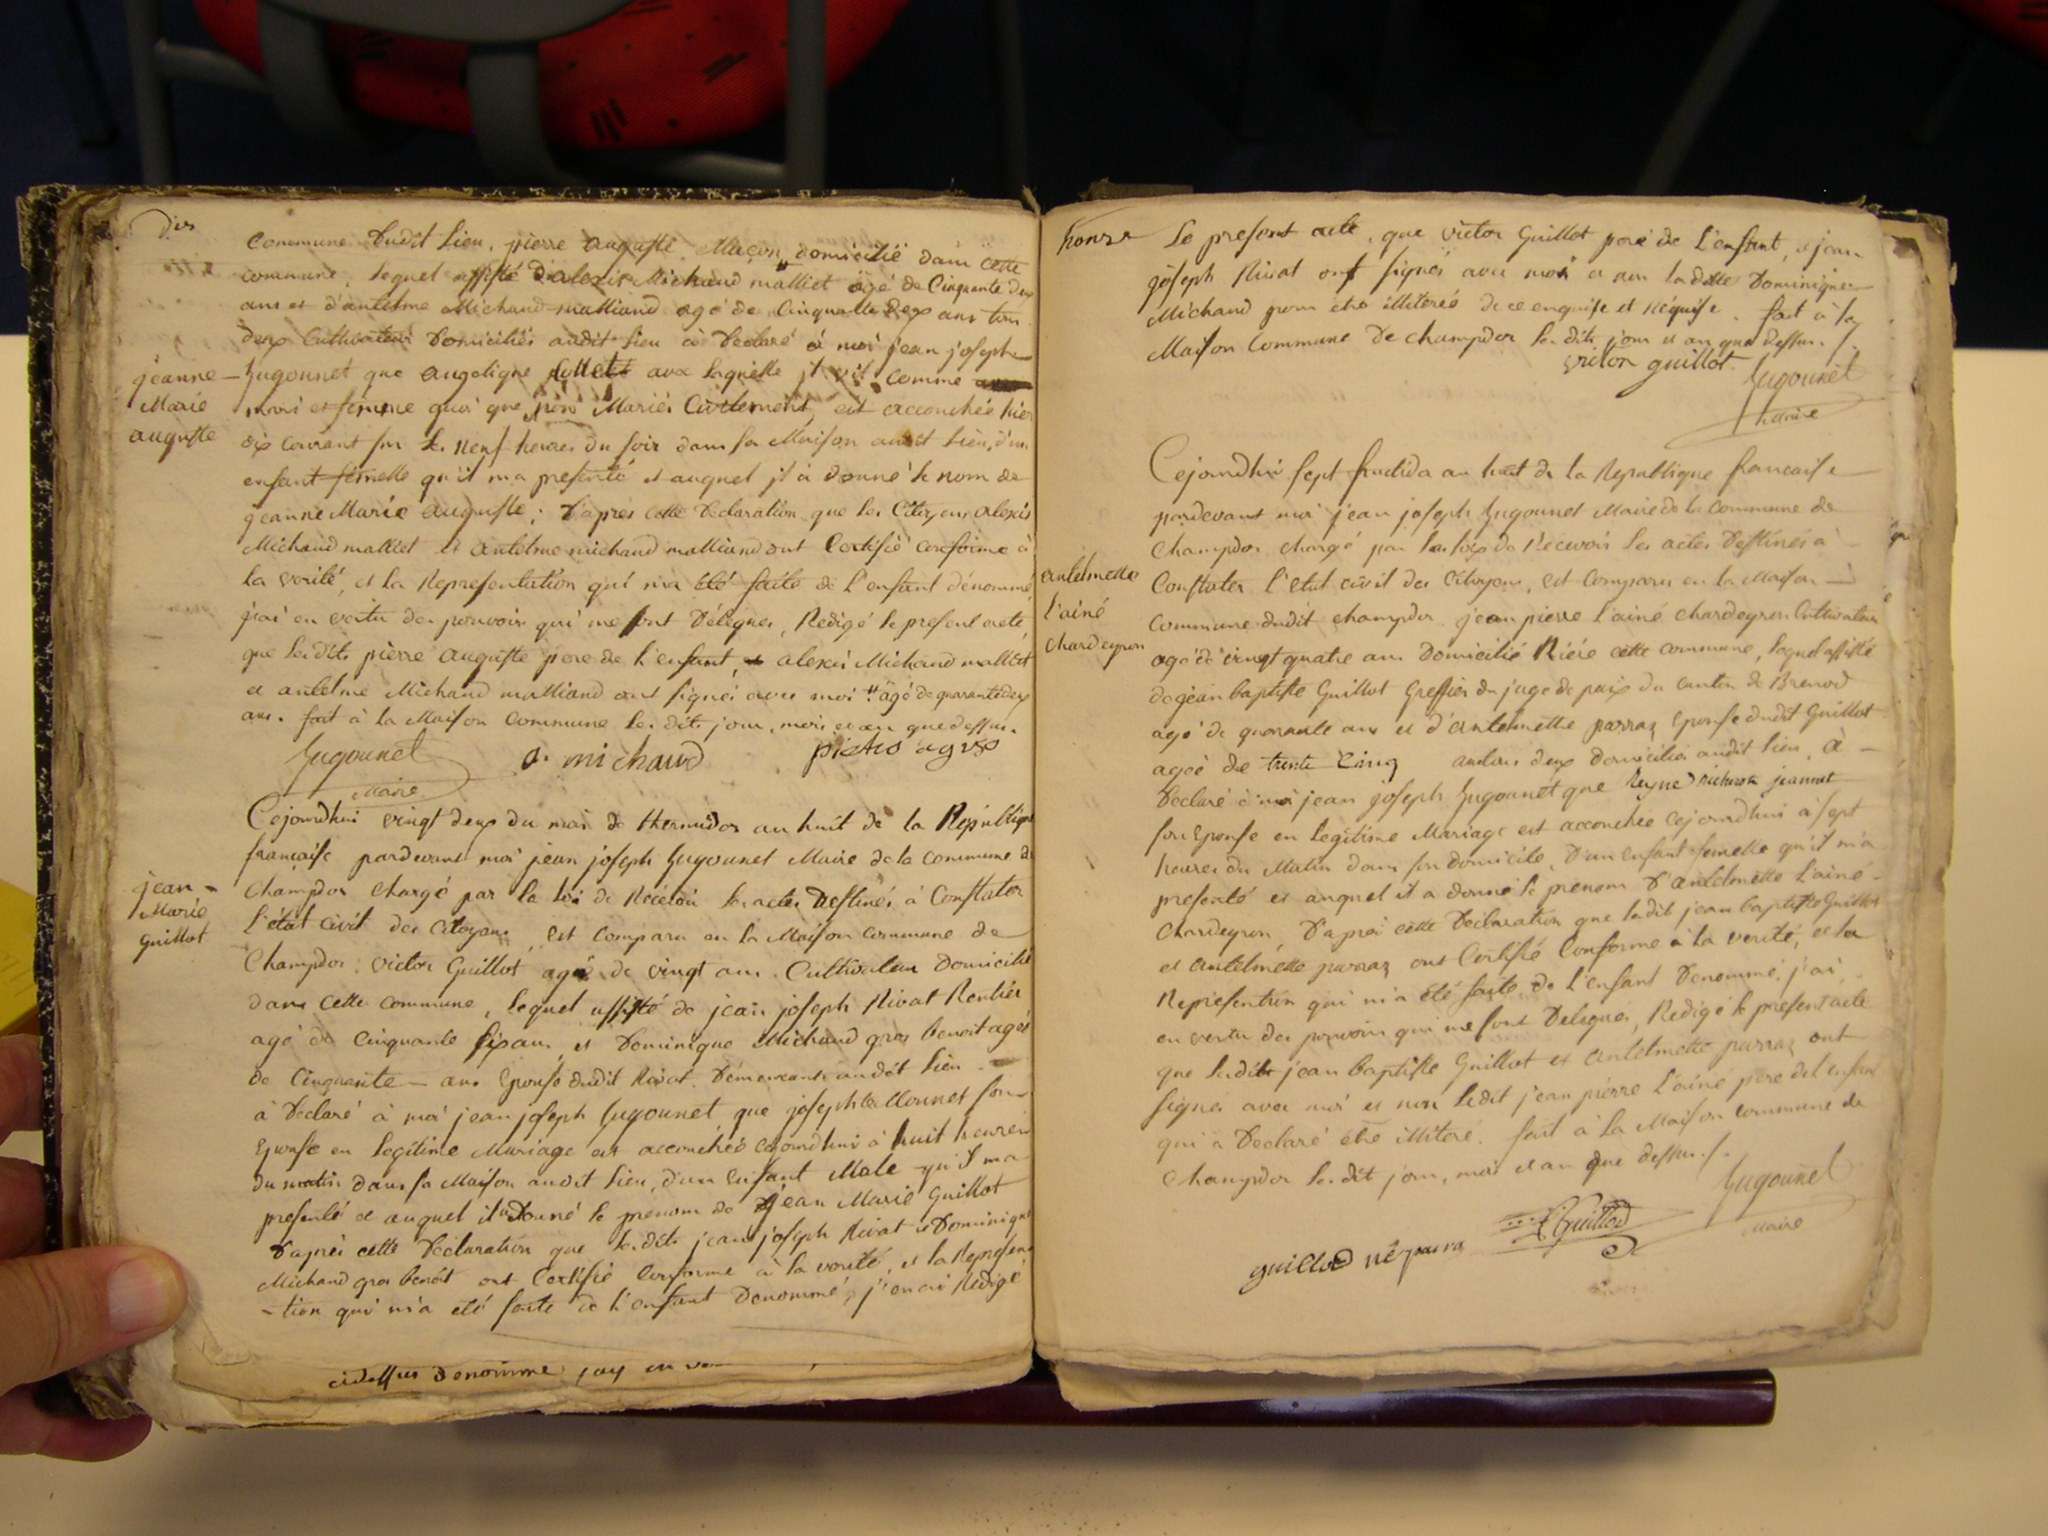 dix
Commune dudit Lieu, pierre auguste Maçon domicilié dans cette
commune, lequel assisté d'alexis Michaud malliet âgé de Cinquante deux
ans et d'antelme Michaud malliand agé de Cinquante Deux ans tous
deux Cultivateurs Domiciliés audit Lieu à Déclaré à moi jean joseph
jeanne
Marie
auguste
Gugonnet que angeligne avec laquelle il vit comme
mari et femme quoi que non Mariés Civilement, est accouchée hier
dix courant sur les neuf heures du soir dans sa Maison audit Lieu, d'un
enfant femelle qu'il m'a presenté et auquel il à donné le nom de
jeanne Marie auguste; D'aprés cette Déclaration que les Citoyens alexis
Michaud malliet et antelme michaud malliand ont Certifié conforme à
la verité, et la Representation qui m'a été faite de l'enfant dénommé
j'ai en vertu des pouvoirs qui me sont Délégués, Redigé le present acte
que lesdits pierre auguste pere de l'enfant, alexis Michaud malliet
et antelme Michaud malliand ont signés avec moi âgé de quarante deux
ans. fait à la Maison Commune les dits jour, mois et an que dessus.
Gugonnet a. michaud pietro
Maire
Cejourdhui vingt deux du mois de thermidor an huit de la République
française pardevant moi jean joseph Gugonnet Maire de la commune de
jean
Marie
Guillot
Champdor Chargé par la loi de Recevoir les actes Destinés à Constater
l'état civil des Citoyens, est comparu en la Maison commune de
Champdor, victor Guillot agé de vingt ans, Cultivateur Domicilié
dans cette commune, lequel assisté de jean joseph Rivat Rentier
agé de Cinquante six ans, et Dominique Michaud gros benoit agée
de Cinquante ans Epouse dudit Rivat, Demeurants audit Lieu
à Déclaré à moi jean joseph Gugonnet que josephte Monnet son
Epouse en legitime Mariage est accouchée cejourdhui à huit heures
du matin dans sa Maison audit Lieu, d'un Enfant Male qu'il m'a
presenté et auquel il a Donné le prenom de jean Marie Guillot
D'aprés cette Déclaration que lesdits jean joseph Rivat et Dominique
Michaud gros benoit ont Certifié Conforme à la verité, et la Represen
-tion qui m'a été faite de l'enfant Denommé, j'en ai Redigé
cidessus denommé jay en
honze
Le present acte, que victor Guillot pere de l'enfant, et jean
joseph Rivat ont signés avec moi et non ladite Dominique
Michaud pour etre illiterée de ce enquise et Réquise. fait à la
Maison Commune de champdor les dits jour et an que dessus.
victor guillot
Gugonnet
Maire
Cejourdhui sept fructidor an huit de la Republique francaise
pardevant moi jean joseph Gugonnet Maire de la Commune de
Champdor chargé par les loix de Recevoir les actes Destinés à
antelmette
l'ainé
chardeyron
Constater l'etat civil des Citoyens, est Comparu en la Maison
commune dudit champdor jean pierre l'ainé chardeyron Cultivateur
agé de vingt quatre ans Domicilié Riére cette commune, lequel assisté
de jean baptiste Guillot Greffier du juge de paix du canton de Brenod
agé de quarante ans et d'antelmette parraz Epouse dudit Guillot
ageé de trente Cinq audans deux Domiciliés audit Lieu, à
Déclaré à moi jean joseph Gugonnet que Reyne jeannet
son Epouse en legitime Mariage est accouchée cejourdhui à sept
heures du Matin dans son Domicile, D'un enfant femelle qu'il m'a
presenté et auquel il a donné le prenom D'antelmette l'ainé
Chardeyron, D'aprés cette Déclaration que ledit jean baptiste Guillot
et antelmette parraz ont Certifié Conforme à la verité, et la
Represention qui m'a été faite de l'enfant Denommé, j'ai
en vertu des pouvoirs qui me sont Délegués, Redigé le present acte
que ledit jean baptiste Guillot et antelmette parraz ont
signés avec moi et non ledit jean pierre l'ainé pere del enfant
qui à Declaré étre illiteré. fait à La Maison commune de
Champdor les dit jour, mois et an que dessus.
Gugonnet
Maire
Guillod
guillod né parra